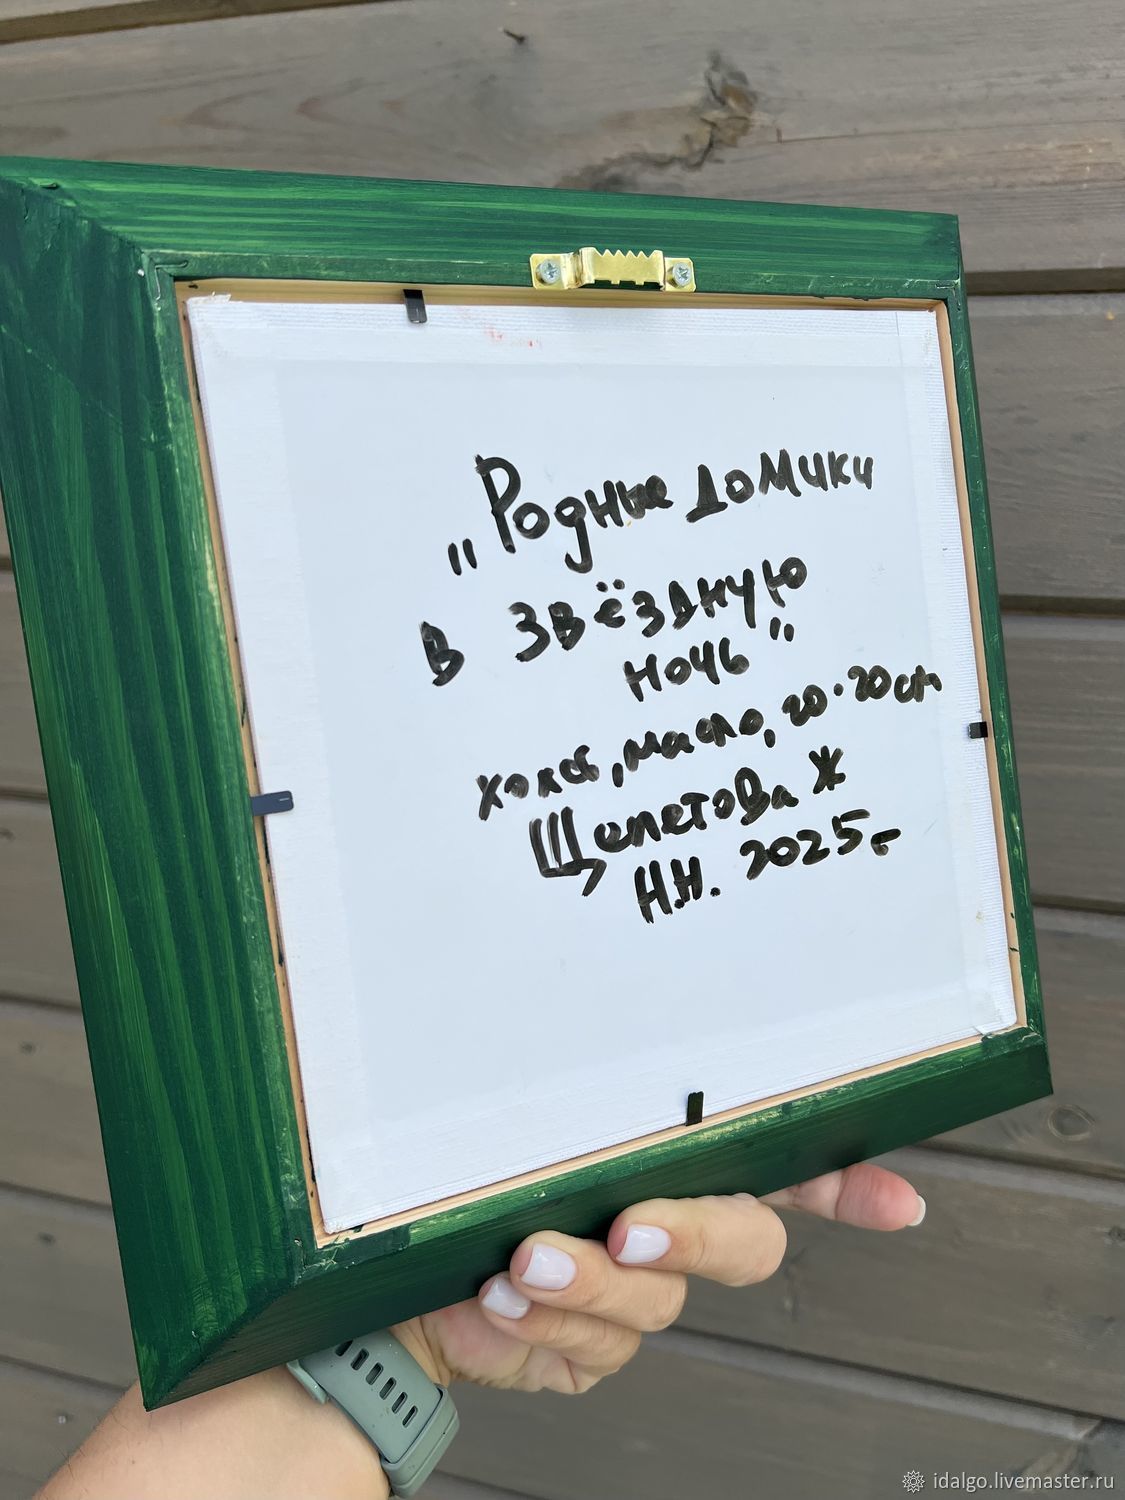 „Родные домики
в звёздную
ночь"
холст, масло, 20·20см
Щепетова Ж
Н.Н. 2025г
idalgo.livemaster.ru